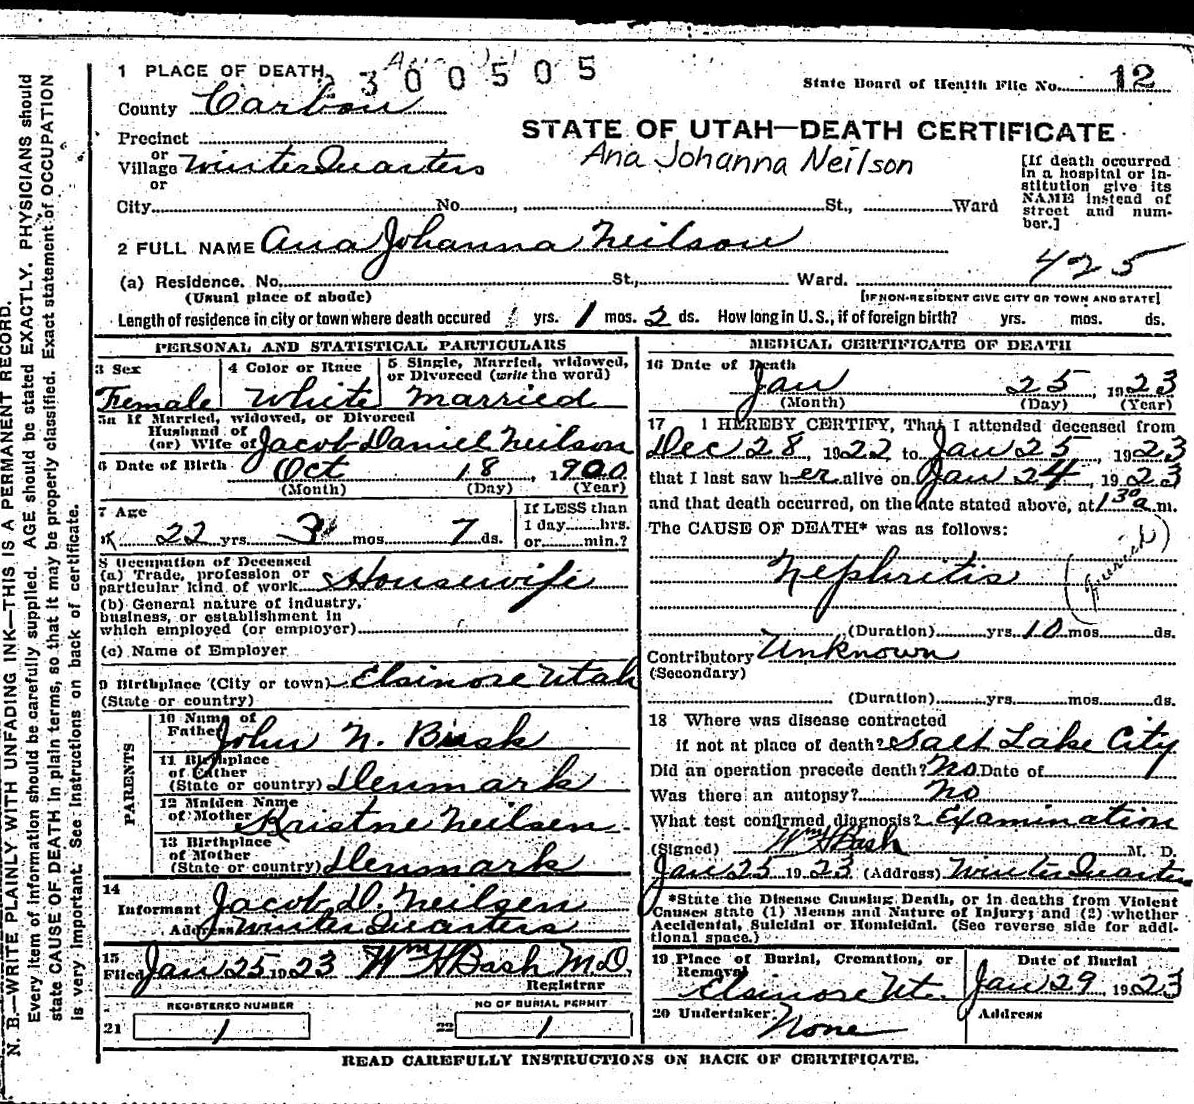 N. B.—WRITE PLAINLY WITH UNFADING INK—THIS IS A PERMANENT RECORD.
Every item of information should be carefully supplied. AGE should be stated EXACTLY. PHYSICIANS should
state CAUSE OF DEATH in plain terms, so that it may be properly classified. Exact statement of OCCUPATION
is very important. See Instructions on back of certificate.
1 PLACE OF DEATH
2300505
State Board of Health File No. 12
County Carbon
STATE OF UTAH—DEATH CERTIFICATE
Precinct
or
Village Winter Quarters
Ana Johanna Neilson
or
[If death occurred
in a hospital or in-
stitution give its
NAME instead of
street and num-
ber.]
City No. , St., Ward
2 FULL NAME Ana Johanna Neilson
425
(a) Residence. No. St., Ward.
(Usual place of abode)
[IF NON-RESIDENT GIVE CITY OR TOWN AND STATE]
Length of residence in city or town where death occured yrs. 1 mos. 2 ds. How long in U. S., if of foreign birth? yrs. mos. ds.
PERSONAL AND STATISTICAL PARTICULARS
3 Sex
Female
4 Color or Race
White
5 Single, Married, widowed,
or Divorced (write the word)
Married
5a If Married, widowed, or Divorced
Husband of
(or) Wife of Jacob Daniel Neilson
6 Date of Birth Oct 18, 1900
(Month) (Day) (Year)
7 Age
22 yrs. 3 mos. 7 ds.
If LESS than
1 day hrs.
or min.?
8 Occupation of Deceased
(a) Trade, profession or
particular kind of work Housewife
(b) General nature of industry,
business, or establishment in
which employed (or employer)
(c) Name of Employer
9 Birthplace (City or town) Elsinore Utah
(State or country)
PARENTS
10 Name of
Father John N. Busk
11 Birthplace
of Father
(State or country) Denmark
12 Maiden Name
of Mother Kristne Neilsen
13 Birthplace
of Mother
(State or country) Denmark
14
Informant Jacob D. Neilsen
Address Winter Quarters
15
Filed Jan 25 1923 Wm H Bash M D.
Registrar
REGISTERED NUMBER
21 1
NO OF BURIAL PERMIT
22 1
MEDICAL CERTIFICATE OF DEATH
16 Date of Death
Jan 25 1923
(Month) (Day) (Year)
17 I HEREBY CERTIFY, That I attended deceased from
Dec 28, 1922 to Jan 25, 1923
that I last saw her alive on Jan 24, 1923
and that death occurred, on the date stated above, at 1 30 a m.
The CAUSE OF DEATH* was as follows:
Nephritis
(Duration) yrs. 10 mos. ds.
Contributory Unknown
(Secondary)
(Duration) yrs. mos. ds.
18 Where was disease contracted
if not at place of death? Salt Lake City
Did an operation precede death? No Date of
Was there an autopsy? No
What test confirmed diagnosis? Examination
(Signed) Wm H Bash M. D.
Jan 25 1923 (Address) Winter Quarters
*State the Disease Causing Death, or in deaths from Violent
Causes state (1) Means and Nature of Injury; and (2) whether
Accidental, Suicidal or Homicidal. (See reverse side for addi-
tional space.)
19 Place of Burial, Cremation, or
Removal
Elsinore Ut.
Date of Burial
Jan 29, 1923
20 Undertaker
None
Address
READ CAREFULLY INSTRUCTIONS ON BACK OF CERTIFICATE.